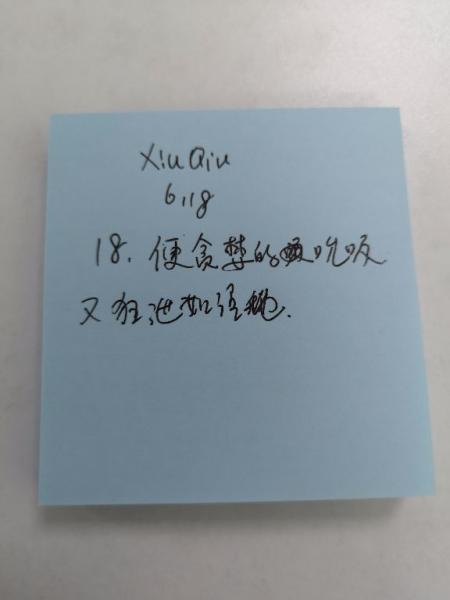 XiuQiu
6.18
18. 便贪婪的吮吸
又狂泄如